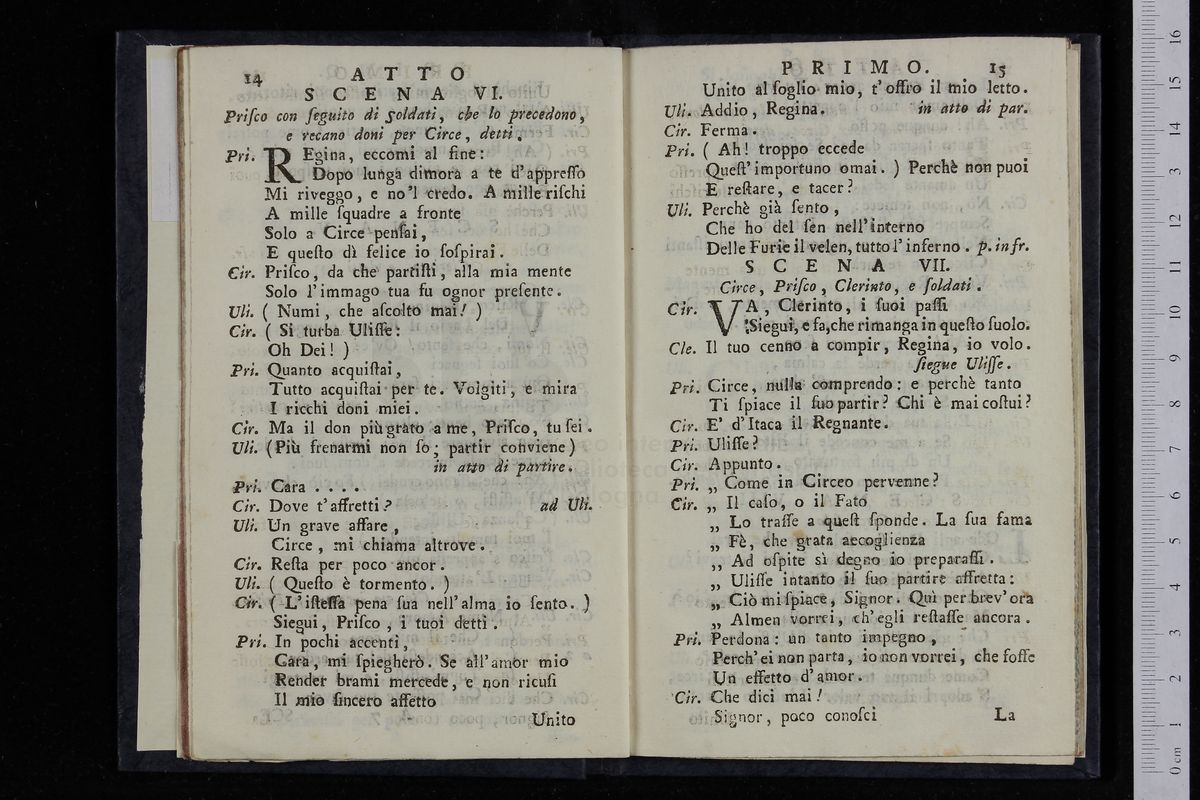 14 ATTO
SCENA VI.
Priſco con ſeguito di ſoldati, che lo precedono,
e recano doni per Circe, detti.
Pri. REgina, eccomi al fine:
Dopo lunga dimora a te d'appreſſo
Mi riveggo, e no'l credo. A mille riſchi
A mille ſquadre a fronte
Solo a Circe penſai,
E queſto dì felice io ſoſpirai.
Cir. Priſco, da che partiſti, alla mia mente
Solo l'immago tua fu ognor preſente.
Uli. ( Numi, che aſcolto mai! )
Cir. ( Si turba Uliſſe:
Oh Dei! )
Pri. Quanto acquiſtai,
Tutto acquiſtai per te. Volgiti, e mira
I ricchi doni miei.
Cir. Ma il don più grato a me, Priſco, tu ſei.
Uli. (Più frenarmi non ſo, partir conviene)
in atto di partire.
Pri. Cara . . . .
Cir. Dove t'affretti? ad Uli.
Uli. Un grave affare,
Circe, mi chiama altrove.
Cir. Reſta per poco ancor.
Uli. ( Queſto è tormento. )
Cir. ( L'iſteſſa pena ſua nell'alma io ſento. )
Siegui, Priſco, i tuoi detti.
Pri. In pochi accenti,
Cara, mi ſpiegherò. Se all'amor mio
Render brami mercede, e non ricuſi
Il mio ſincero affetto
Unito
PRIMO. 15
Unito al ſoglio mio, t'offro il mio letto.
Uli. Addio, Regina. in atto di par.
Cir. Ferma.
Pri. ( Ah! troppo eccede
Queſt'importuno omai. ) Perchè non puoi
E reſtare, e tacer?
Uli. Perchè già ſento,
Che ho del ſen nell'interno
Delle Furie il velen, tutto l'inferno. p. in fr.
SCENA VII.
Circe, Priſco, Clerinto, e ſoldati.
Cir. VA, Clerinto, i ſuoi paſſi
Siegui, e fa, che rimanga in queſto ſuolo.
Cle. Il tuo cenno a compir, Regina, io volo.
ſiegue Uliſſe.
Pri. Circe, nulla comprendo: e perchè tanto
Ti ſpiace il ſuo partir? Chi è mai coſtui?
Cir. E' d'Itaca il Regnante.
Pri. Uliſſe?
Cir. Appunto.
Pri. „ Come in Circeo pervenne?
Cir. „ Il caſo, o il Fato
„ Lo traſſe a queſt ſponde. La ſua fama
„ Fè, che grata accoglienza
„ Ad oſpite sì degno io preparaſſi.
„ Uliſſe intanto il ſuo partire affretta:
„ Ciò mi ſpiace, Signor. Quì per brev'ora
„ Almen vorrei, ch'egli reſtaſſe ancora.
Pri. Perdona: un tanto impegno,
Perch'ei non parta, io non vorrei, che foſſe
Un effetto d'amor.
Cir. Che dici mai!
Signor, poco conoſci La